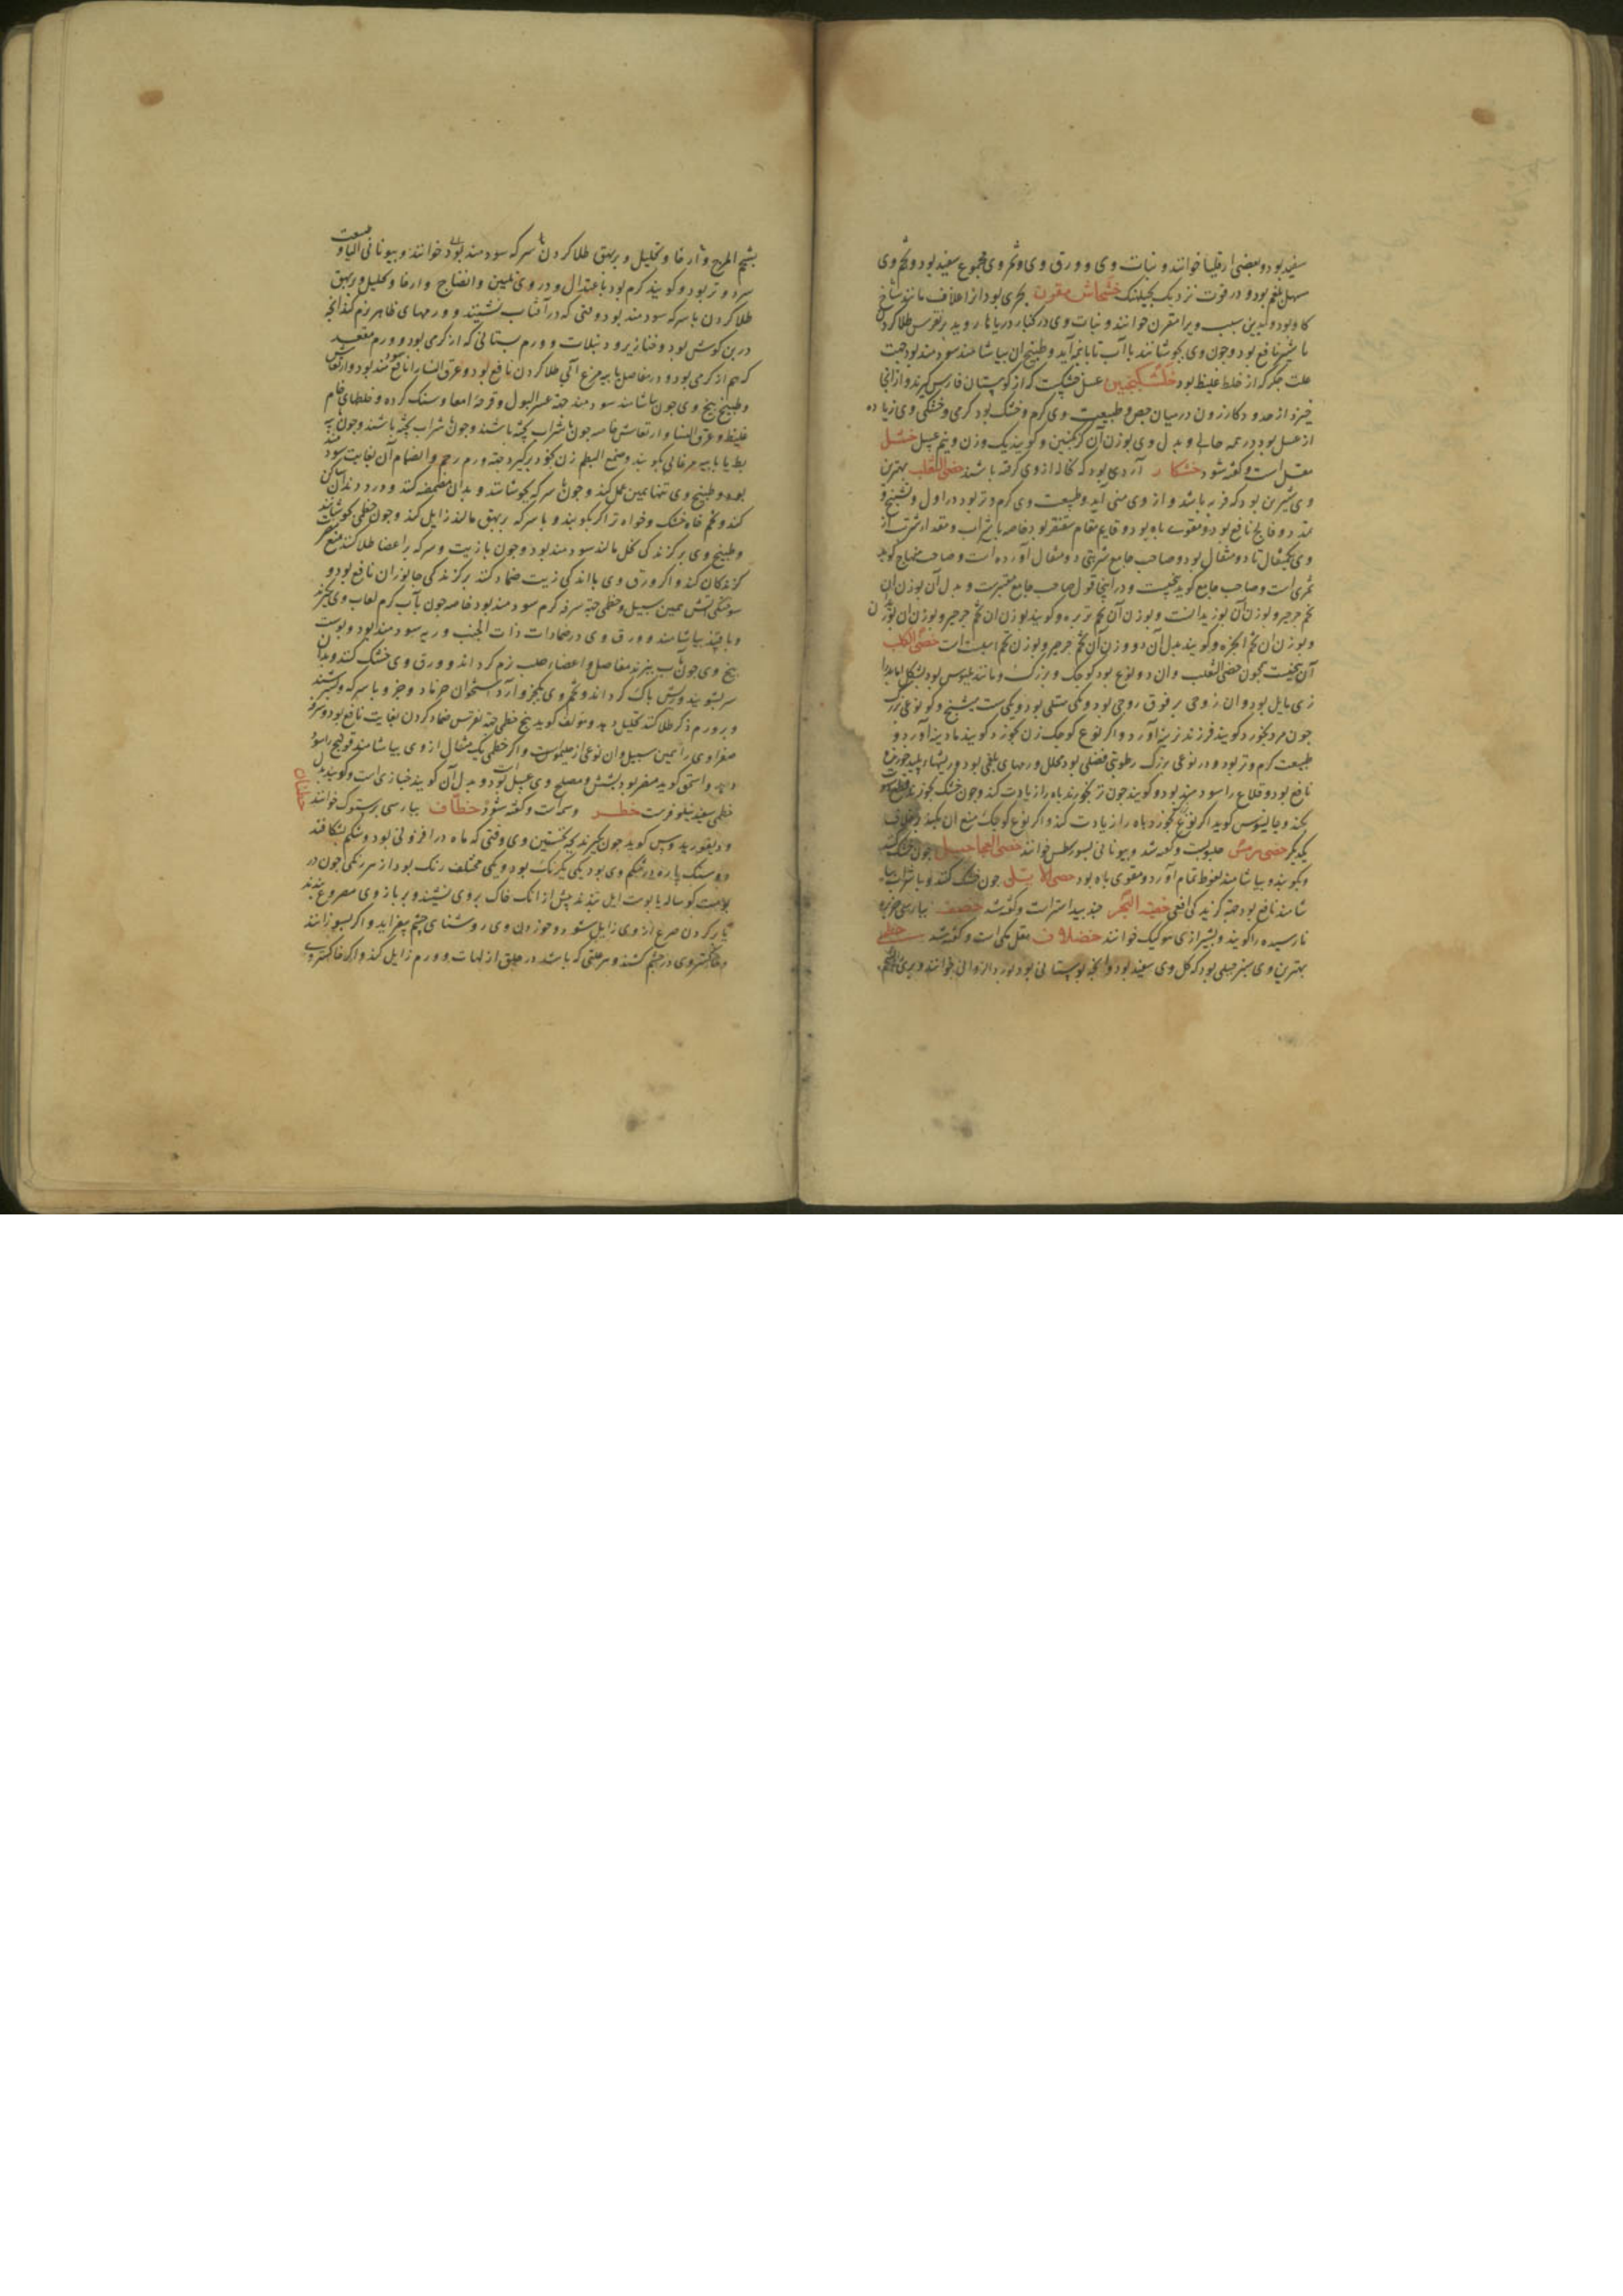 سفید بود و بعضی ارقلیا خوانند و نبات وی و ورق وی و ثمر وی مجموع سفید بود و تخم وی
سهل بلغم بود و در قوت نزدیک بجبلهنک خشخاش مقرن بحری بود از اغلاف مانند شاخ
کاو بود و بدین سبب ویرا مقرن خوانند و نبات وی در کنار دریاها روید بر نقرس طلا کردن
با شیر نافع بود و چون وی بجوشانند با آب تا بانیمه آید و طبیخ آن بیاشامند سودمند بود جهت
علت جگر که از خلط غلیظ بود خشکنجبین عسل خشکست که از کوهستان فارس گیرند و از آنجا
خیزد از حدود کازرون در میان جص و طبیعت وی گرم و خشک بود گرمی و خشکی وی زیاده
از عسل بود در همه حالی و بدل وی بوزن آن ترنجبین و گویند یک وزن و نیم عسل خشل
مقل است و گفته شود خشکار آردی بود که نخاله از وی گرفته باشند خصی الثعلب بهترین
وی شیرین بود که فربه باشد و از وی منی آید و طبیعت وی گرم و تر بود در اول و تشنج و
تمدد و فالج نافع بود و مقوی باه بود و قایم مقام سقنقر بود خاصه با شراب و مقدار شربت از
وی یک مثقال تا دو مثقال بود و صاحب جامع شربتی دو مثقال آورده است و صاحب منهاج گوید
ثمری است و صاحب جامع گوید بیخیست و در اینجا قول صاحب جامع معتبرست و بدل آن بوزن آن
تخم جرجیر و بوزن آن بوزیدانست و بوزن آن تخم تربزه و گویند بوزن آن تخم جرجیر و بوزن آن بوزیدان
و بوزن آن تخم انجره و گویند بدل آن دو وزن آن تخم جرجیر و بوزن تخم اسبست است خصی الکلب
آن بیخیست همچون خصی الثعلب و آن دو نوع بود کوچک و بزرگ و مانند بلبوس بود بشکل اما بدرازی
زی مایل بود و آن زوجی بر فوق زوجی بود و یکی ممتلی بود و یکی متشنج و گویند نوعی بزرگ
چون مرد بخورد گویند فرزند نرینه آورد و اگر نوع کوچک زن بخورد گویند مادینه آورد و
طبیعت گرم و تر بود و در نوعی بزرگ رطوبتی فضلی بود محلل ورمهای بلغمی بود و ریشهاء پلید چون
نافع بود و قلاع را سودمند بود و گویند چون تر بخورند باه را زیادت کند و چون خشک بخورند قطع شهوت
بکند و جالینوس گوید اگر نوع بزرگ بخورد باه را زیادت کند و اگر نوع کوچک منع آن بکند و بخلاف
یکدیگر خصی هرمس حلبوبست و گفته شد و بیونانی لینورسطس خوانند خصی العجاجیل چون خشک کنند
و بکوبند و بیاشامند نعوظ تمام آورد و مقوی باه بود خصی الایل چون خشک کنند و با شراب بیا
شامند نافع بود جهة گزیدگی افعی خصیة البحر جندبیدستر است و گفته شد خضف بپارسی خربزه
نارسیده را گویند و بشیرازی سوکیک خوانند خضلاف مقل مکی است و گفته شد خطمی
بهترین وی سبز جبلی بود که گل وی سفید بود و آنچه بوستانی بود ورد الزوانی خوانند و بری
بشحم المرج و ارخا و تحلیل و بر بهق طلا کردن با سرکه سودمند بود خوانند و بیونانی التیا و طبیعت
سرد و تر بود و گویند گرم بود باعتدال و در وی تلیین و انضاج و ارخا و تحلیل و بر بهق
طلا کردن با سرکه سودمند بود وقتی که در آفتاب نشینند و ورمهای ظاهر نرم کند آنچه
در بن گوش بود و خنازیر و دبیلات و ورم پستانی که از گرمی بود و ورم مقعد
که هم از گرمی بود و در مفاصل با پیه مرغ آبی طلا کردن نافع بود و عرق النسا را نافع بود و ارتعاش
و طبیخ بیخ وی چون بیاشامند سودمند جهة عسر البول و قرحه امعا و سنگ گرده و خلطهای خام
غلیظ و عرق النسا و ارتعاش خاصه چون با شراب پخته باشند و چون با شراب پخته باشند و چون با پیه
بط یا با پیه مرغابی بکوبند و صمغ البطم زن بخود برگیرد جهة ورم رحم و انضمام آن بغایت سودمند
بود و طبیخ وی تنها همین عمل کند و چون با سرکه بجوشانند و بدان مضمضه کنند درد دندان ساکن
کند و تخم خواه خشک و خواه تر اگر بکوبند و با سرکه بر بهق مالند زایل کند و چون خطمی بجوشانند
و طبیخ وی بر گزندگی نحل مالند سودمند بود و چون با زیت و سرکه بر اعضا طلا کنند منع
گزندگان کند و اگر ورق وی با اندکی زیت ضماد کنند بر گزندگی جانوران نافع بود و
سوختگی آتش همین سبیل و خطمی جهة سرفه گرم سودمند بود خاصه چون بآب گرم لعاب وی بگیرند
و با قند بیاشامند و ورق وی در ضمادات ذات الجنب و ریه سودمند بود و پوست
بیخ وی چون بآب بپزند مفاصل و اعضاء صلب نرم گرداند و ورق وی خشک کنند و بدان
سر بشویند و ریش پاک گرداند و تخم وی بگیرند و با سرکه بسرشند
و بر ورم ذکر طلا کنند تحلیل دهد و مؤلف گوید بیخ خطمی جهة نقرس ضماد کردن بغایت نافع بود و سرفه
صفراوی را همین سبیل و آن نوعی از ملیموس است و اگر خطمی یک مثقال از وی بیاشامند قولنج را سود
دهد و اسحق گوید مضر بود بشش و مصلح وی عسل است و بدل آن گویند خبازی است و گویند بدل
خطمی سفید نیلوفرست خطر وسمه است و گفته شود خطاف بپارسی پرستوک خوانند
و دیسقوریدوس گوید چون بگیرند بچه نخستین وی وقتی که ماه در افزونی بود و شکم بشکافند
دو سنگ پاره در شکم وی بود یکی یکرنگ بود و یکی مختلف رنگ بود از هر رنگی چون در
پوست گوساله یا پوست ایل بندند پیش از آنک خاک بر وی نشیند و بر بازوی مصروع بندند
یا بر گردن صرع از وی زایل شود و خوردن وی روشنایی چشم بیفزاید و اگر بسوزانند
و خاکستر وی در چشم کشند و هر علتی که باشد در حلق از لهات و ورم زایل کند و اگر خاکستر وی
خطاف